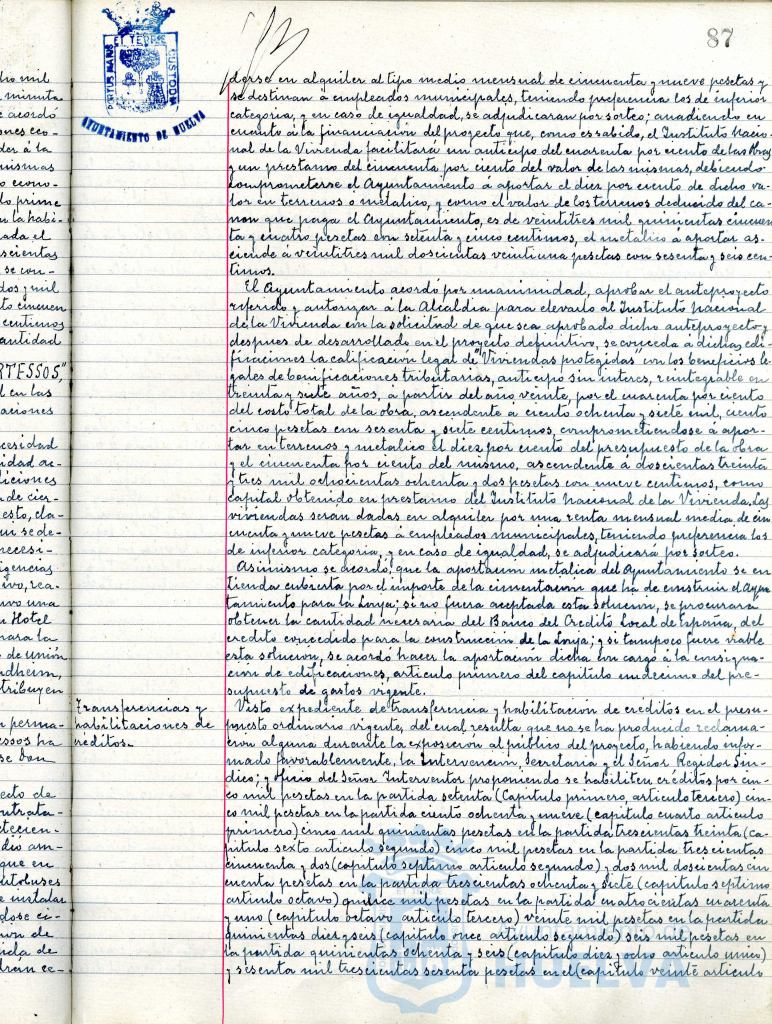 87
PORTUS MARIS ET TERRÆ CUSTODIA
AYUNTAMIENTO DE HUELVA
dio mil
minuta
e acordó
nes eco-
der á la
mismas
o econo-
do prime
n la habi-
ada el
scientas
se con-
dos mil
to cincuen
centimos
antidad
RTESSOS",
l en las
aciones
cesidad
idad ac-
diciones
de cier-
esto, cla-
ui se de-
necesi-
igencias
ivo, rea-
uvo una
n Hotel
nara la
de unión
ndheim,
tribuyen
n perma-
essos ha
se Don
ecto de
ontrata-
etecien-
dió am-
que en
autobuses
e instalar
dose ci-
ion de
nda de
drán ce-
Transferencias y
habilitaciones de
créditos.-
darse en alquiler al tipo medio mensual de cincuenta y nueve pesetas y
se destinan á empleados municipales, teniendo preferencia los de inferior
categoria, y en caso de igualdad, se adjudicaran por sorteo; añadiendo en
cuanto á la financiación del proyecto que, como es sabido, el Instituto Nacio-
nal de la Vivienda facilitará un anticipo del cuarenta por ciento de las obras
y un prestamo del cincuenta por ciento del valor de las mismas, debiendo
comprometerse el Ayuntamiento á aportar el diez por ciento de dicho va-
lor en terrenos o metalico, y como el valor de los terrenos deducido del ca-
non que paga el Ayuntamiento, es de veintitres mil quinientas cincuen
ta y cuatro pesetas con setenta y cinco centimos, el metalico á aportar as-
ciende á veintitres mil doscientas veintiuna pesetas con sesenta y seis cen-
timos.
El Ayuntamiento acordó por unanimidad, aprobar el anteproyecto
referido y autorizar á la Alcaldia para elevarlo al Instituto Nacional
de la Vivienda con la solicitud de que sea aprobado dicho anteproyecto y
despues de desarrollado en el proyecto definitivo, se conceda á dichas edi-
ficaciones la calificacion legal de "Viviendas protegidas" con los beneficios le-
gales de bonificaciones tributarias, anticipo sin interes, reintegrable en
treinta y siete años, á partir del año veinte, por el cuarenta por ciento
del costo total de la obra, ascendente á ciento ochenta y siete mil, ciento
cinco pesetas con sesenta y siete centimos, comprometiendose á apor-
tar en terrenos y metalico el diez por ciento del presupuesto de la obra
y el cincuenta por ciento del mismo, ascendente á doscientas treinta
y tres mil ochocientas ochenta y dos pesetas con nueve centimos, como
capital obtenido en prestamo del Instituto Nacional de la Vivienda. Las
viviendas serán dadas en alquiler por una renta mensual media de cin
cuenta y nueve pesetas á empleados municipales, teniendo preferencia los
de inferior categoria, y en caso de igualdad, se adjudicará por sorteo.
Asimismo se acordó, que la aportacion metalica del Ayuntamiento se en
tienda cubierta por el importe de la cimentacion que ha de construir el Ayun
tamiento para la Lonja; si no fuera aceptada esta solucion, se procurará
obtener la cantidad necesaria del Banco del Credito Local de España, del
credito concedido para la construccion de la Lonja; y si tampoco fuere viable
esta solucion, se acordó hacer la aportacion dicha con cargo á la consigna-
ción de edificaciones, articulo primero del capitulo undecimo del pre-
supuesto de gastos vigente.
Visto expediente de transferencia y habilitacion de creditos en el presu-
puesto ordinario vigente, del cual resulta que no se ha producido reclama-
cion alguna durante la exposicion al público del proyecto, habiendo infor-
mado favorablemente, la Intervencion, Secretaria y el Señor Regidor Sin-
dico; y oficio del Señor Interventor proponiendo se habiliten créditos por cin-
co mil pesetas en la partida setenta (Capitulo primero, articulo tercero) cin-
co mil pesetas en la partida ciento ochenta y nueve (capitulo cuarto articulo
primero) cinco mil quinientas pesetas en la partida trescientas treinta (ca-
pitulo sexto articulo segundo) cinco mil pesetas en la partida trescientas
cincuenta y dos (capitulo septimo articulo segundo) y dos mil doscientas cin
cuenta pesetas en la partida trescientas ochenta y siete (capitulo septimo
articulo octavo) quince mil pesetas en la partida cuatrocientas cuarenta
y uno (capitulo octavo articulo tercero) veinte mil pesetas en la partida
quinientas diez y seis (capitulo once articulo segundo) seis mil pesetas en
la partida quinientas ochenta y seis (capitulo diez y ocho articulo unico)
y sesenta mil trescientas sesenta pesetas en el (capitulo veinte articulo
Ayuntamiento de
HUELVA